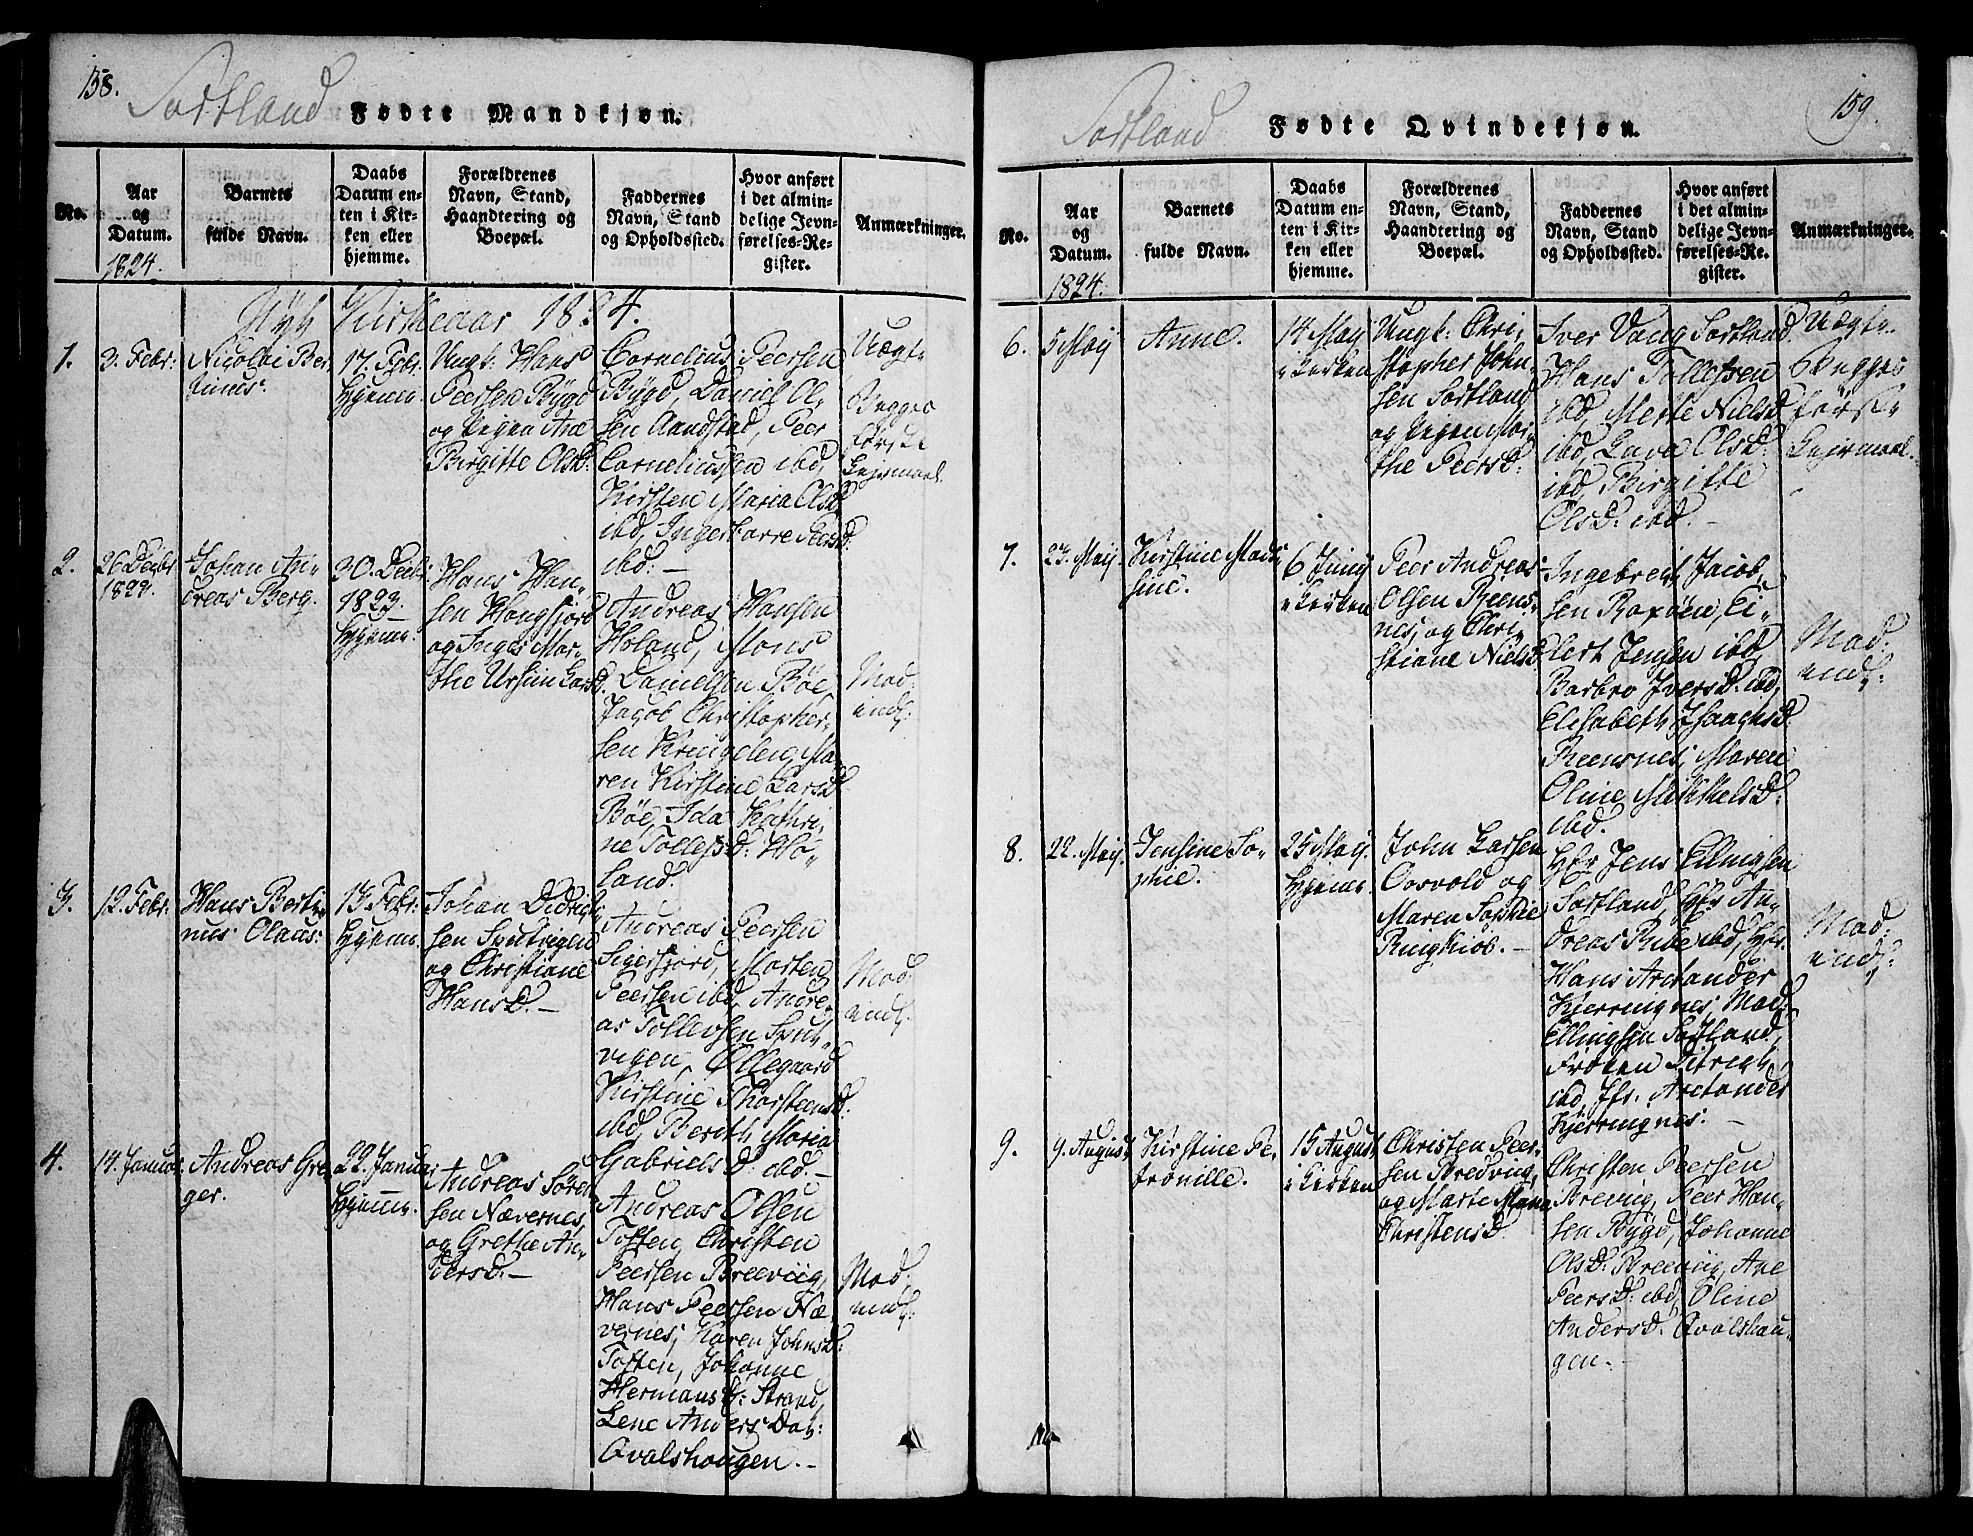 138.
Sortland
Fødte Mandkjøn.
No.
Aar
og
Datum.
1824.
Barnets
fulde Navn.
Daabs
Datum en-
ten i Kir-
ken eller
hjemme.
Forældrenes
Navn, Stand,
Haandtering og
Boepæl.
Faddernes
Navn, Stand
og Opholdssted.
Hvor anført
i det almin-
delige Jevn-
førelses-Re-
gister.
Anmærkninger.
Nyt Kirkeaar 1824.
1.
3. Febr:
Nicolai Ber
tinus.
17. Febr.
hjemme.
Ungk: Hans
Peersen Bÿgd
og Pigen Ane
Birgitte OlsD:
Cornelius Peersen
Bÿgd, Daniel Ol-
sen Aandstad, Peer
Corneliussen ibd,
Kirsten Maria OlsD
ibd, Ingebarre PeersD:
ibd: -
Uægte
Begges
første
Lejermaal.
2.
26 Decbr
1823.
Johan An-
dreas Berg.
30. Decbr:
1823.
hjemme.
Hans Han-
sen Hongfjord
og Inger Mar-
the Ursin LarsD.
Andreas Hansen
Holand, Mons
Danielsen Bøe,
Jacob Christopher-
sen Kringelen, Ma-
ren Kirstine LarsD
Bøe, Ida Kathri-
ne TollefsD: Ho-
land.
Mod:
indp:
3.
12. Febr:
Hans Berti-
nus Olaus:
13. Febr:
hjemme.
Johan Didrik-
sen Sputvigen
og Christiane
HansD. -
Andreas Peersen
Sigerfjord, Morten
Peersen ibd, Andre-
as Tollevsen Sput-
vigen, Øllegaard
Kirstine ThorsteensD:
ibd, Berith Maria
GabrielsD: ibd. -
Mod:
indp:
4.
14. Januar
Andreas Gre-
ger.
22. Januar
hjemme.
Andreas Sören-
sen Nævernes,
og Grethe An-
dersD. -
Andreas Olsen
Toften, Christen
Peersen Breeviig,
Hans Peersen Næ-
vernes, Karen JohnsD:
Toften, Johanne
HermansD: Strand,
Lene Anders Dat:
Qvalshougen. -
Mod:
indp:
159.
Sortland
Fødte Qvindekjøn.
No.
Aar
og
Datum.
1824.
Barnets
fulde Navn.
Daabs
Datum en-
ten i Kir-
ken eller
hjemme.
Forældrenes
Navn, Stand,
Haandtering og
Boepæl.
Faddernes
Navn, Stand
og Opholdssted.
Hvor anført
i det almin-
delige Jevn-
førelses-Re-
gister.
Anmærkninger.
6.
5 Maj
Anne.
14 Maj
i Kirken
Ungk: Chri-
stopher John-
sen Sortland
og Pigen Mar-
the PeersD:
Iver Vang Sortland
Hans Tollefsen
ibd, Mette NielsD
ibd, Lava OlsD:
ibd, Birgitte
OlsD: ibd. -
Uægte.
Begges
første
Lejermaal.
7.
23. Maj.
Kirstine Mads-
sine.
6 Junij
i Kirken
Peer Andreas
Olsen Reens-
nes, og Chri-
stiane NielsD.
Ingebregt Jacob-
sen Roxöen, Ei-
lert Jensen ibd,
Barbro IversD: ibd,
Elisabeth IsaachsD:
Reensnes, Maren
Oline MikkelsD:
ibd.
Mod:
indp:
8.
22. Maj.
Jensine So-
phie.
25 Maj.
hjemme.
John Larsen
Osvold og
Maren Sophie
Ringkiöb. -
Hr Jens Ellingsen
Sortland, Hr An-
dreas Rube ibd, Hr.
Hans Arctander
Kjerringnes, Mad:
Ellingsen Sortland,
Frøken
ibd, Jfr. Arctander
Kjerringnes. -
Mod:
indp:
9.
9. August
Kirstine Pe-
tronille.
15 August
i Kirken
Christen Peer-
sen Bredviig,
og Marte Maria
ChristensD.
Christen Peersen
Breviig, Peer Han-
sen Bÿgd, Johanne
OlsD: Breeviig, Ane
PeersD: ibd, Oline
AndersD: Qvalshau-
gen. -